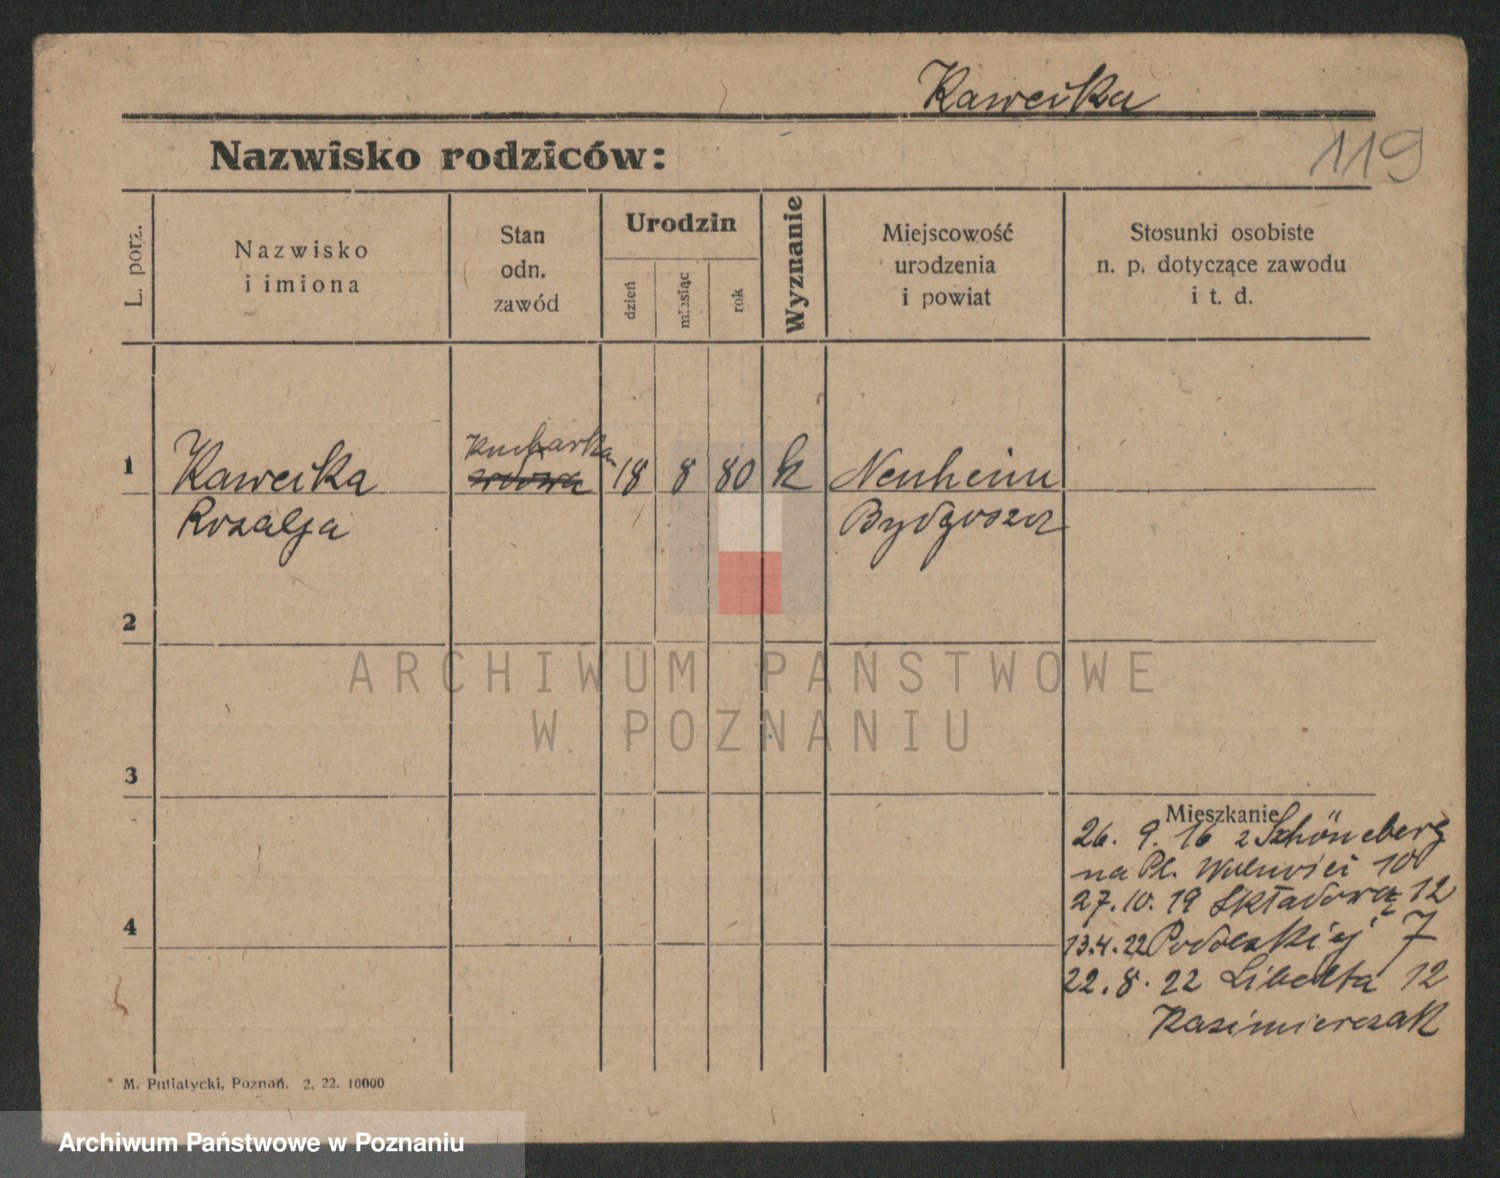 Kawecka
119
Nazwisko rodziców:
L. porz.
Nazwisko
i imiona
Stan
odn.
zawód
Urodzin
dzień
miesiąc
rok
Wyznanie
Miejscowość
urodzenia
i powiat
Stosunki osobiste
n. p. dotyczące zawodu
i t. d.
kucharka
1 Kawecka wdowa 18 8 80 k Neuheim
Rozalja Bydgoszcz
2
ARCHIWUM PAŃSTWOWE
W POZNANIU
3
Mieszkanie
26. 9. 16 z Schöneberg
na Pl. Wolności 10
27. 10. 19 Składowa 12
4
13.4.22 Podolskiej 7
22. 8. 22 Libelta 12
Kasimierczak
M. Putiatycki, Poznań. 2. 22. 10000
Archiwum Państwowe w Poznaniu